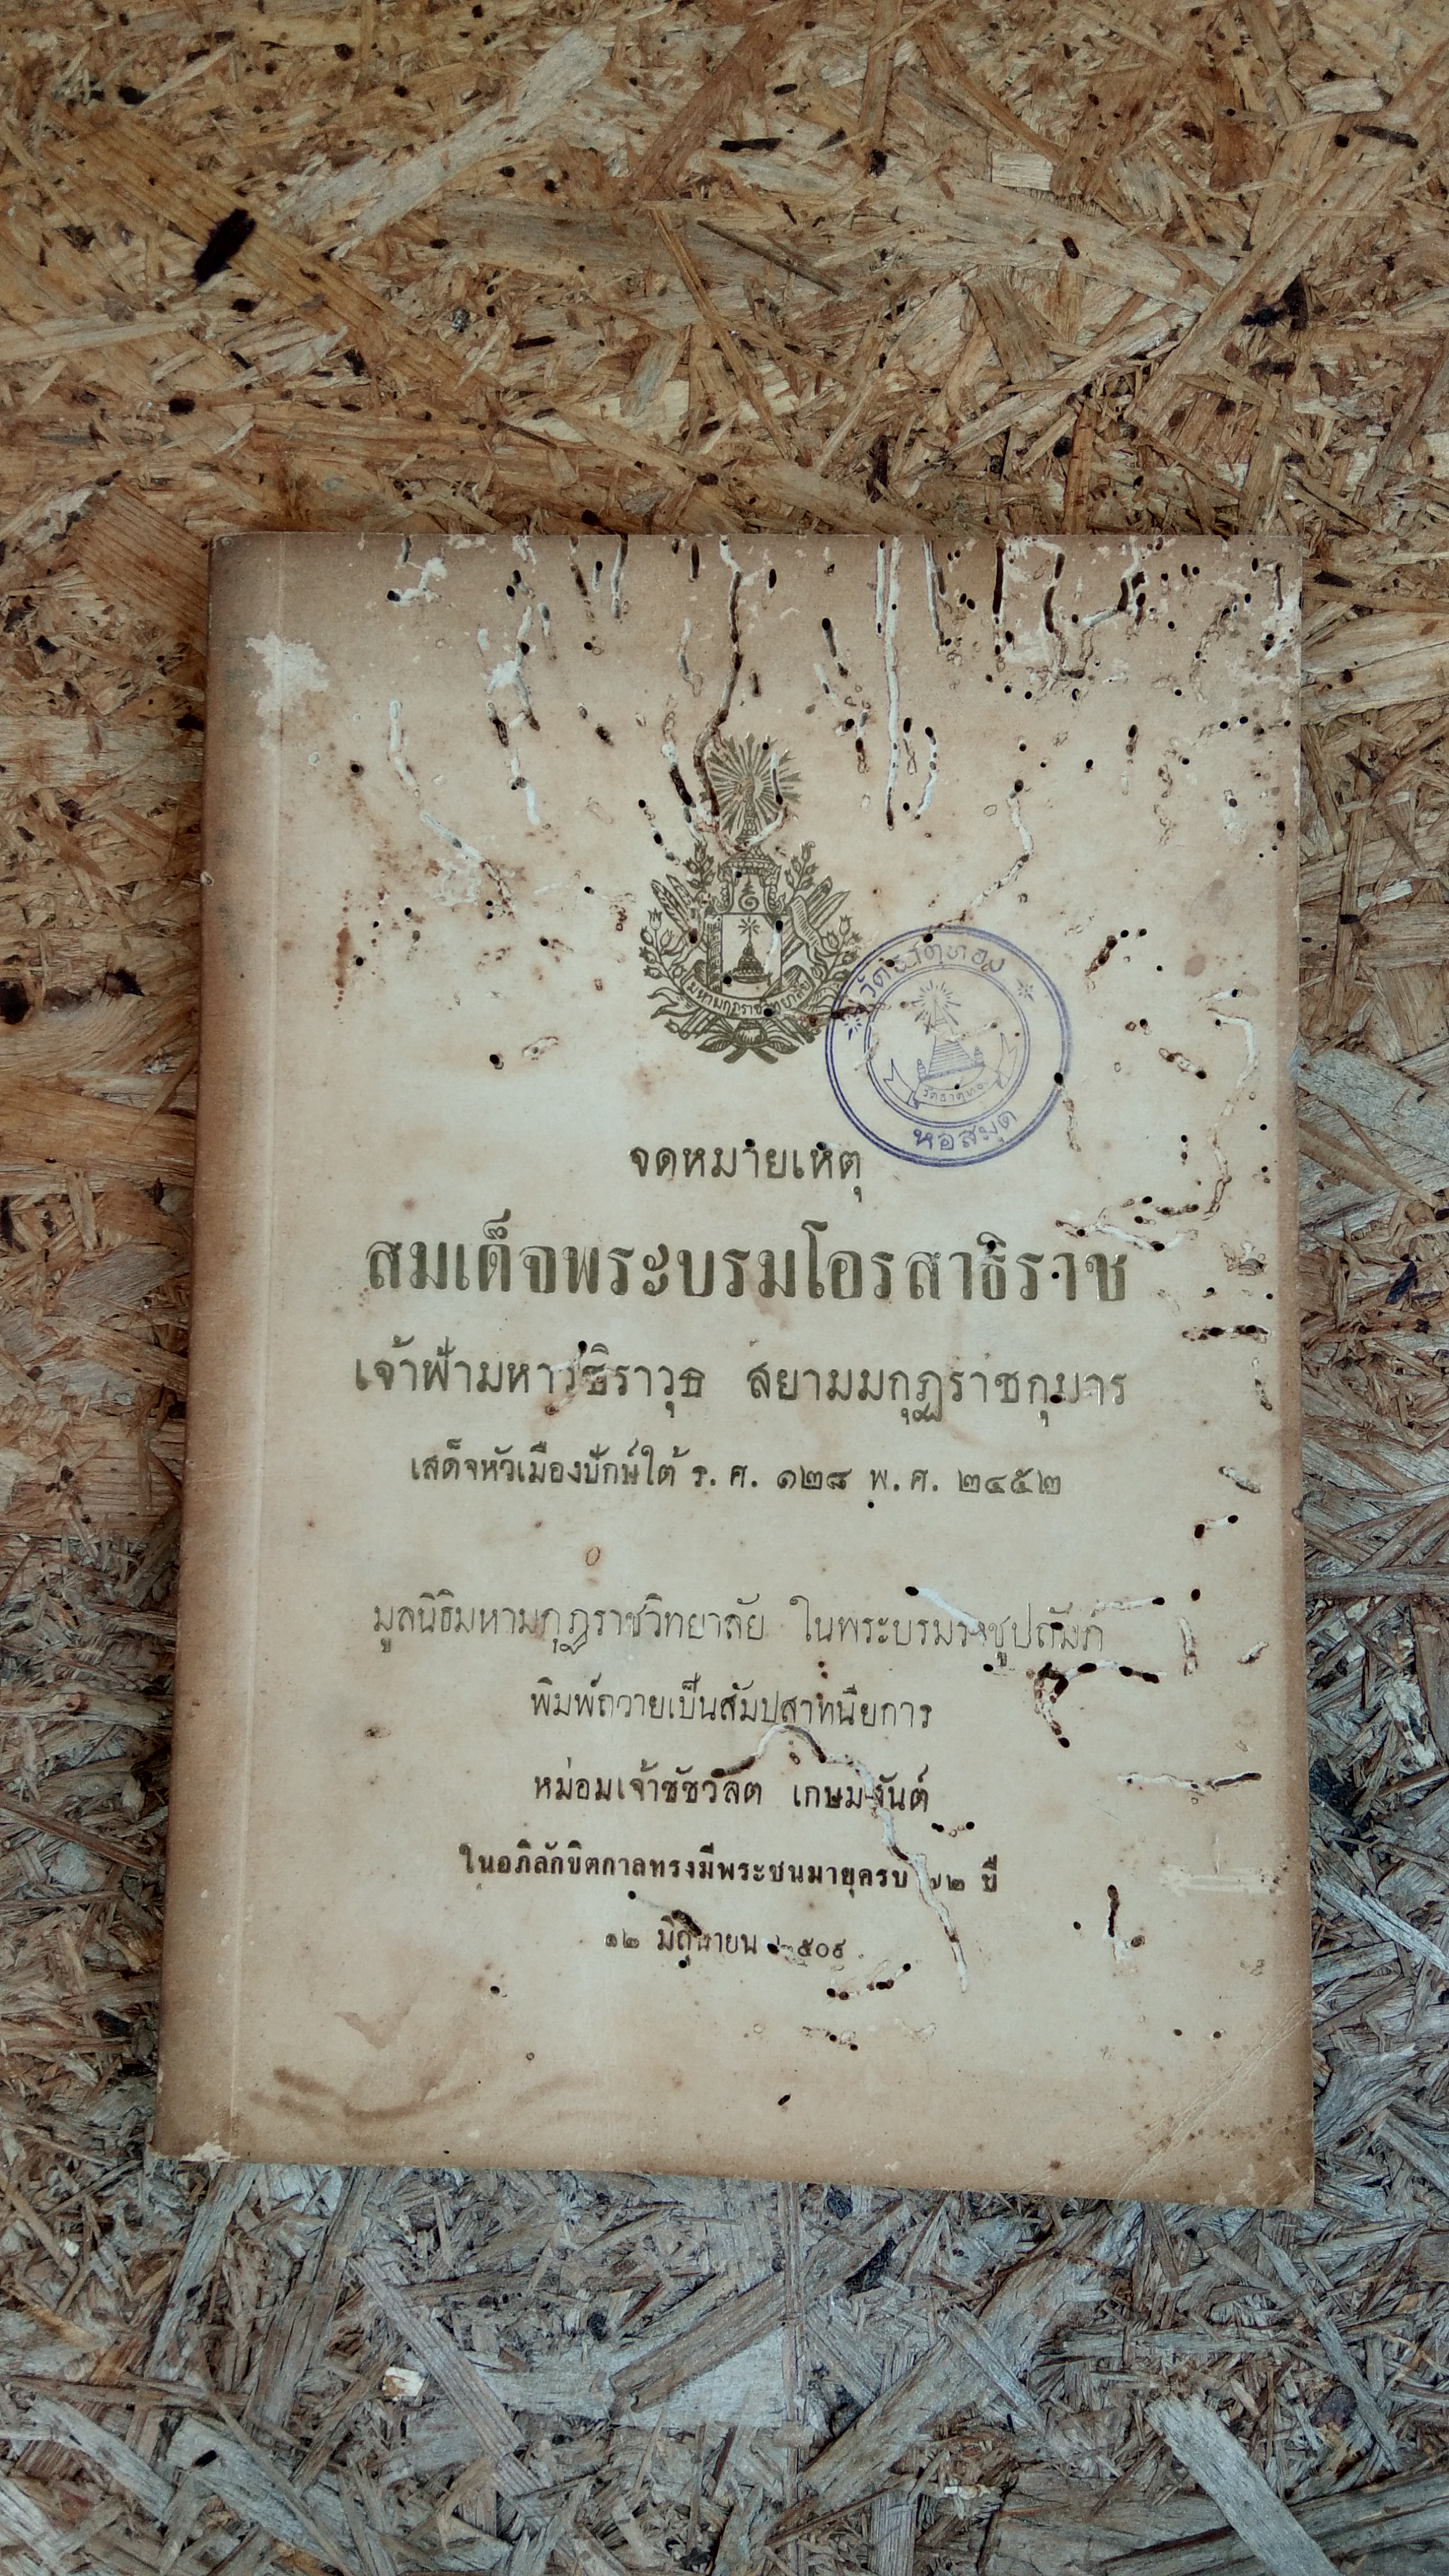 มหามกุฏราชวิทยาลัย
วัดธาตุทอง
วัดธาตุทอง
หอสมุด
จดหมายเหตุ
สมเด็จพระบรมโอรสาธิราช
เจ้าฟ้ามหาวชิราวุธ สยามมกุฎราชกุมาร
เสด็จหัวเมืองปักษ์ใต้ ร. ศ. ๑๒๘ พ. ศ. ๒๔๕๒
มูลนิธิมหามกุฏราชวิทยาลัย ในพระบรมราชูปถัมภ์
พิมพ์ถวายเป็นสัมปสาทนียการ
หม่อมเจ้าชัชวลิต เกษมสันต์
ในอภิลักขิตกาลทรงมีพระชนมายุครบ ๗๒ ปี
๑๒ มิถุนายน ๒๕๐๙